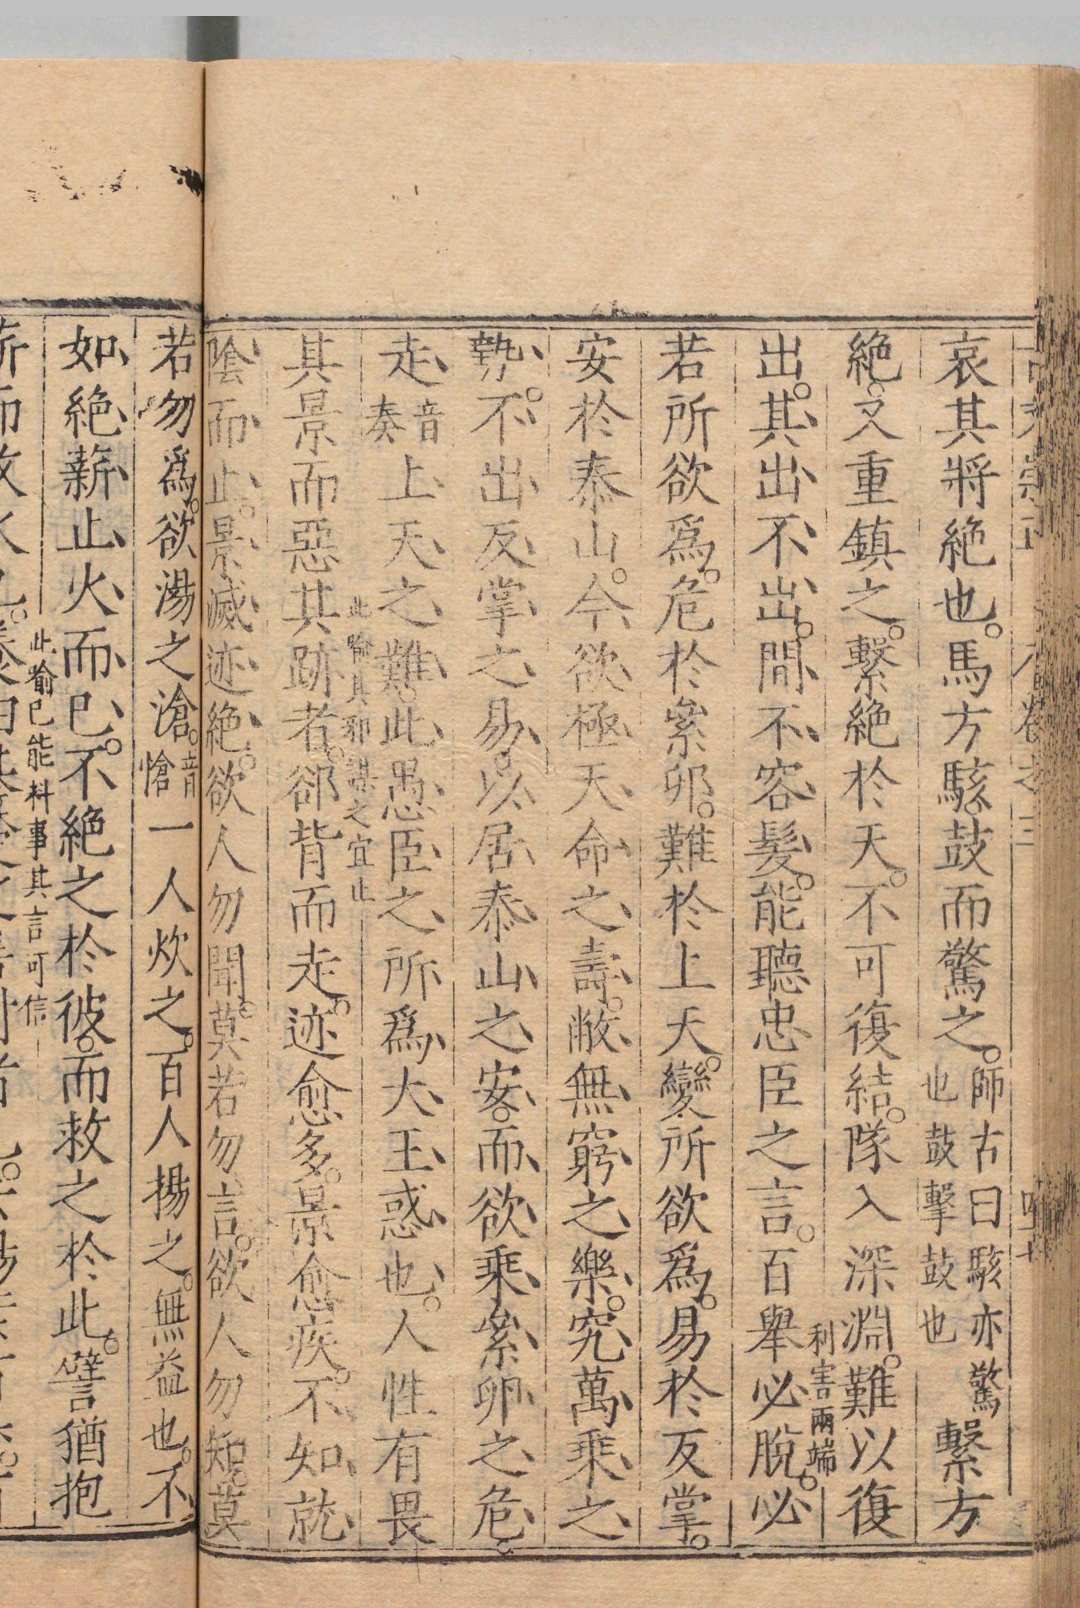 哀其將絶也。馬方駭鼓而驚之。師古曰駭亦驚也鼓擊鼓也繫方
絶。又重鎮之。繫絶於天。不可復結。隊入深淵。難以復
出。其出不出。間不容髮。能聽忠臣之言。百舉必脫。必
利害兩端
若所欲爲。危於絫卵。難於上天。變所欲爲。易於反掌。
安於泰山。今欲極天命之壽。敝無窮之樂。究萬乘之
勢。不出反掌之易。以居泰山之安。而欲乘絫卵之危。
走音奏上天之難。此愚臣之所爲大王惑也。人性有畏
此喻其邪謀之宜止
其景而惡其跡者。郤背而走。迹愈多。景愈疾。不如就
陰而止。景滅迹絶。欲人勿聞。莫若勿言。欲人勿知。莫
若勿爲。欲湯之滄。音愴一人炊之。百人揚之。無益也。不
如絶薪止火而已。不絶之於彼。而救之於此。譬猶抱
此喻已能料事其言可信
薪而救火也。養由基